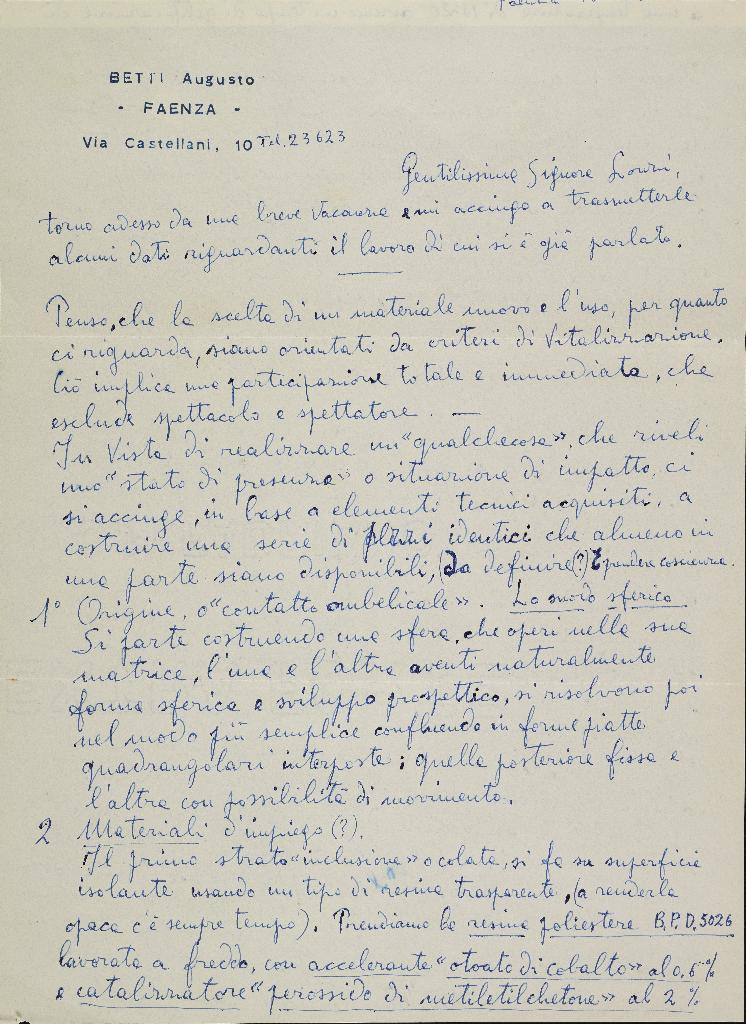 BETTI Augusto
- FAENZA -
Via Castellani, 10 Tel. 23623
Gentilissima Signora
torno adesso da una breve vacanza e mi accingo a trasmetterle
alcuni dati riguardanti il lavoro di cui si è già parlato.
Penso, che la scelta di un materiale nuovo e l'uso, per quanto
ci riguarda, siano orientati da criteri di Vitalizzazione.
Ciò implica una partecipazione totale e immediata, che
esclude spettacolo e spettatore. —
In Vista di realizzare un "qualchecosa", che riveli
uno "stato di presenza" o situazione di impatto, ci
si accinge, in base a elementi tecnici acquisiti, a
costruire una serie di pezzi identici che almeno in
una parte siano disponibili, (da definire(?) prendere coscienza.
1° Origine, o "contatto ombelicale". Lo snodo sferico
Si parte costruendo una sfera, che operi nella sua
matrice, l'una e l'altra aventi naturalmente
forma sferica e sviluppo prospettico, si risolvono poi
nel modo più semplice confluendo in forme piatte
quadrangolari interposte; quella posteriore fissa e
l'altra con possibilità di movimento.
2 Materiali d'impiego (?).
Il primo strato "inclusione" o colata, si fa su superficie
isolante usando un tipo di resina trasparente, (a renderla
opaca c'è sempre tempo). Prendiamo la resina poliestere B.P.D. 5026
lavorata a freddo, con accelerante "otoato di cobalto" al 0,5 %
e catalizzatore "perossido di metiletilchetone" al 2 %